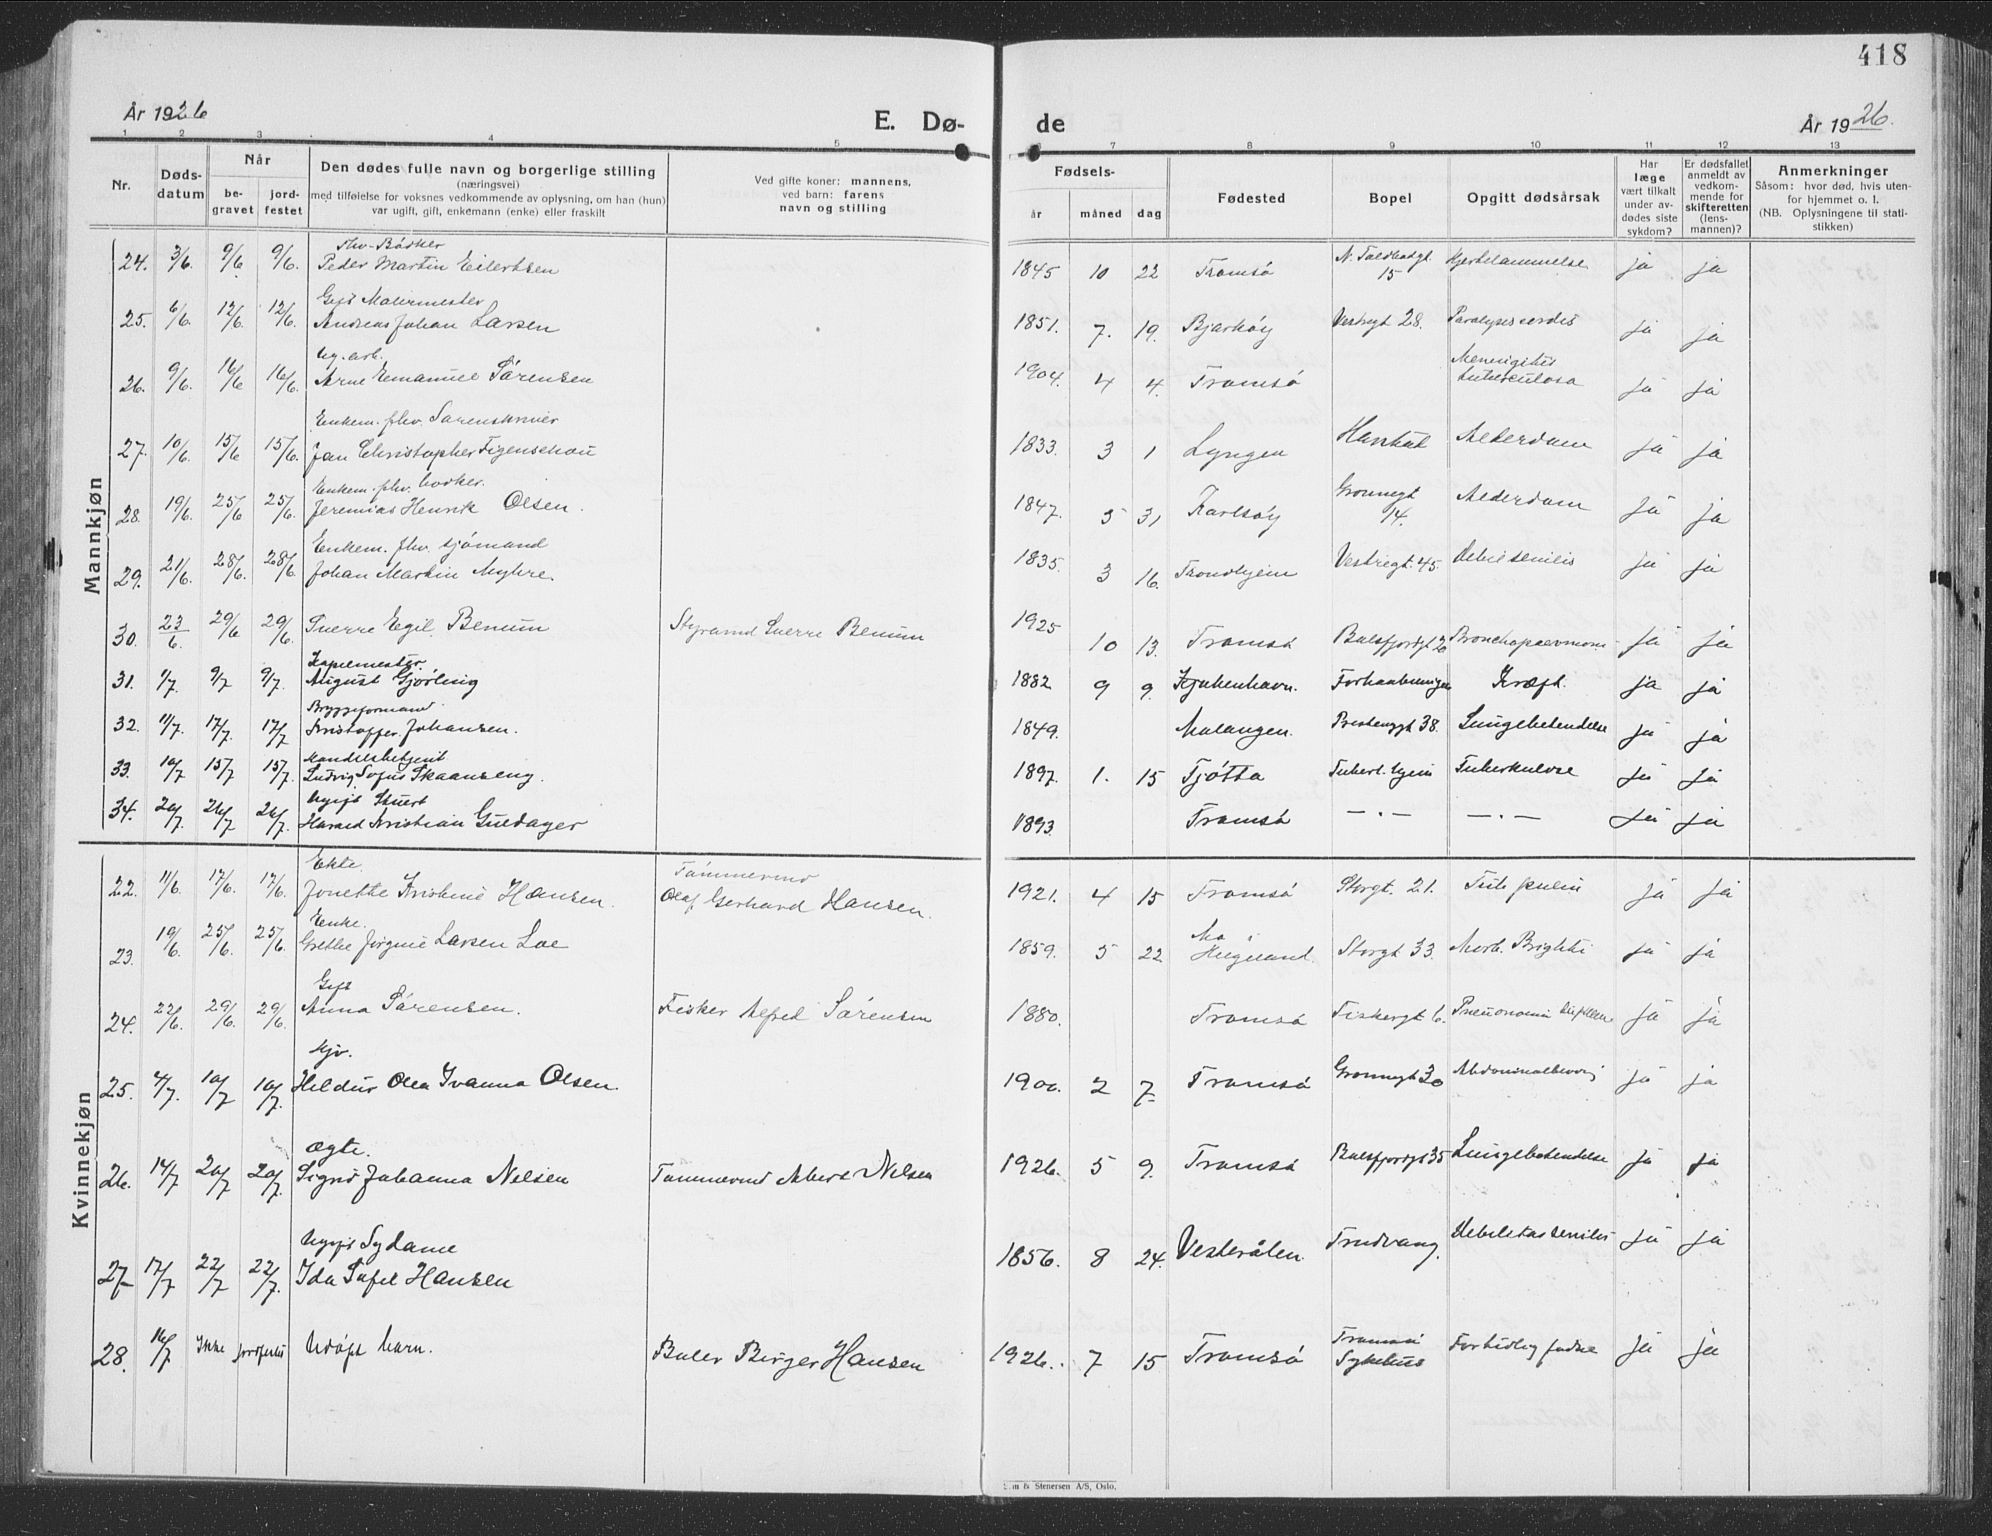 418
År 1926
E. Dø-
de
År 1926.
1 2 3 4 5 6 7 8 9 10 11 12 13
Nr.
Døds-
datum
Når
be-
gravet
jord-
festet
Den dødes fulle navn og borgerlige stilling
(næringsvei)
med tilføielse for voksnes vedkommende av oplysning, om han (hun)
var ugift, gift, enkemann (enke) eller fraskilt
Ved gifte koner: mannens,
ved barn: farens
navn og stilling
Fødsels-
år måned dag
Fødested
Bopel
Opgitt dødsårsak
Har
læge
vært tilkalt
under av-
dødes siste
sykdom?
Er dødsfallet
anmeldt av
vedkom-
mende for
skifteretten
(lens-
mannen)?
Anmerkninger
Såsom: hvor død, hvis uten-
for hjemmet o. l.
(NB. Oplysningene til stati-
stikken)
Mannkjøn
fhv. Bödker
24. 3/6. 9/6 9/6. Peder Martin Eilertsen 1845 10 22 Tromsö N. Toldbodgt. 15 Hjertelammelse ja ja
Gift Malermester
25. 6/6. 12/6. 12/6. Andreas Johan Larsen 1851. 7. 19. Bjarköy Vestregt 28. Paralyses cordis ja ja
Ug. arb.
26. 9/6. 16/6 16/6. Arne Emanuel Sörensen 1904. 4 4. Tromsö Meningitis tuberculosa ja ja
Enkem. fhv. Sorenskriver
27. 10/6. 15/6 15/6. Jan Christopher Figenschou 1833. 3 1 Lyngen Alderdom ja ja
Enkem. fhv. bödker.
28. 19/6. 25/6 25/6. Jeremias Henrik Olsen. 1847. 5 31 Karlsöy Grönnegt 14. Alderdom ja ja
Enkem. fhv. sjömand
29. 21/6. 28/6. 28/6. Johan Martin Myhre. 1835. 3 16. Trondhjem Vestregt. 45. Debil senilis ja ja
30. 23/6. 29/6 29/6. Sverre Egil Benum Styrmand Sverre Benum 1925 10 13. Tromsö Balsfjordgt Bronchopneumoni ja ja
Kapelmester.
31. 1/7. 9/7 9/7. August Gjörling 1882 9 9. Kjøbenhavn. Forhaabningen Kræft. ja ja
Bryggeformand
32. 11/7. 17/7. 17/7 Kristoffer Johansen. 1849. Malangen. Prestenggt 38. Lungebetendelse ja ja
Handelsbetjent
33. 10/7 15/7 15/7. Ludvig Sofus Skaanseng. 1897. 1. 15 Tjötta Tuberk. hjem Tuberkulose ja ja
Ugift Stuert
34. 20/7. 26/7 26/7. Harald Kristian Guldager 1893 Tromsö — . — — . — ja ja
Kvinnekjøn
Ekte.
22. 11/6. 17/6. 17/6. Jonette Kristine Hansen. Tömmermd Olaf Gerhard Hansen. 1921. 4 15 Tromsö Storgt. 21. ja ja
Enke.
23. 19/6. 25/6. 25/6. Grethe Jörgine Larsen Loe 1859. 5 22 Mo Helgeland. Storgt 33. Morb. Brightii ja ja
Gift
24. 22/6. 29/6. 29/6. Anna Sörensen. Fisker Alfred Sörensen 1880. Tromsö Fiskergt 6. ja ja
25. 4/7. 10/7 10/7. Hildur Olea Ivanna Olsen. 1900. 2 7 Tromsö Grönnegt 30 ja ja
Ægte.
26. 14/7 20/7 20/7. Signe Johanna Nilsen Tömmermd Albert Nilsen 1926. 5 9. Tromsö Balsfjordgt 35 Lungebetendelse ja ja
Ugift Sydame
27 17/7 22/7 22/7. Ida Sofie Hansen 1856. 8 24. Vesterålen. Trudvang. Debilitas senilis ja ja
28. 16/7 Ikke jordfestet Udöpt barn. Birger Hansen 1926. 7 15 Tromsö Tromsö Sykehus For tidlig födse ja ja
& Stenersen A/S, Oslo.